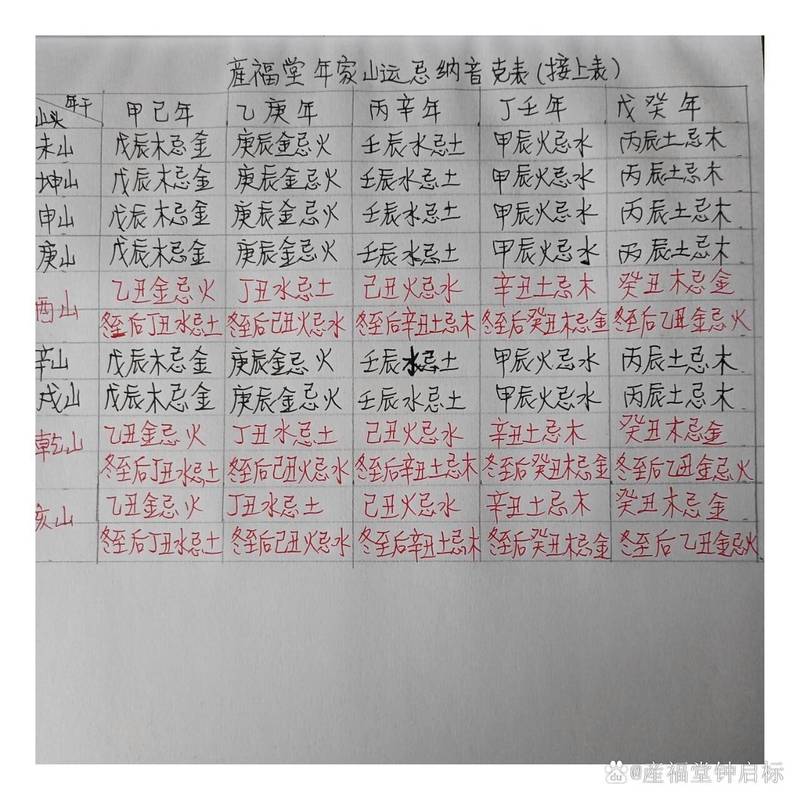 産福堂年家山运忌纳音克表(接上表)
山头 年干 甲己年 乙庚年 丙辛年 丁壬年 戊癸年
未山 戊辰木忌金 庚辰金忌火 壬辰水忌土 甲辰火忌水 丙辰土忌木
坤山 戊辰木忌金 庚辰金忌火 壬辰水忌土 甲辰火忌水 丙辰土忌木
申山 戊辰木忌金 庚辰金忌火 壬辰水忌土 甲辰火忌水 丙辰土忌木
庚山 戊辰木忌金 庚辰金忌火 壬辰水忌土 甲辰火忌水 丙辰土忌木
酉山 乙丑金忌火 丁丑水忌土 己丑火忌水 辛丑土忌木 癸丑木忌金
冬至后丁丑水忌土 冬至后己丑火忌水 冬至后辛丑土忌木 冬至后癸丑木忌金 冬至后乙丑金忌火
辛山 戊辰木忌金 庚辰金忌火 壬辰水忌土 甲辰火忌水 丙辰土忌木
戌山 戊辰木忌金 庚辰金忌火 壬辰水忌土 甲辰火忌水 丙辰土忌木
乾山 乙丑金忌火 丁丑水忌土 己丑火忌水 辛丑土忌木 癸丑木忌金
冬至后丁丑水忌土 冬至后己丑火忌水 冬至后辛丑土忌木 冬至后癸丑木忌金 冬至后乙丑金忌火
亥山 乙丑金忌火 丁丑水忌土 己丑火忌水 辛丑土忌木 癸丑木忌金
冬至后丁丑水忌土 冬至后己丑火忌水 冬至后辛丑土忌木 冬至后癸丑木忌金 冬至后乙丑金忌火
du @産福堂钟启标